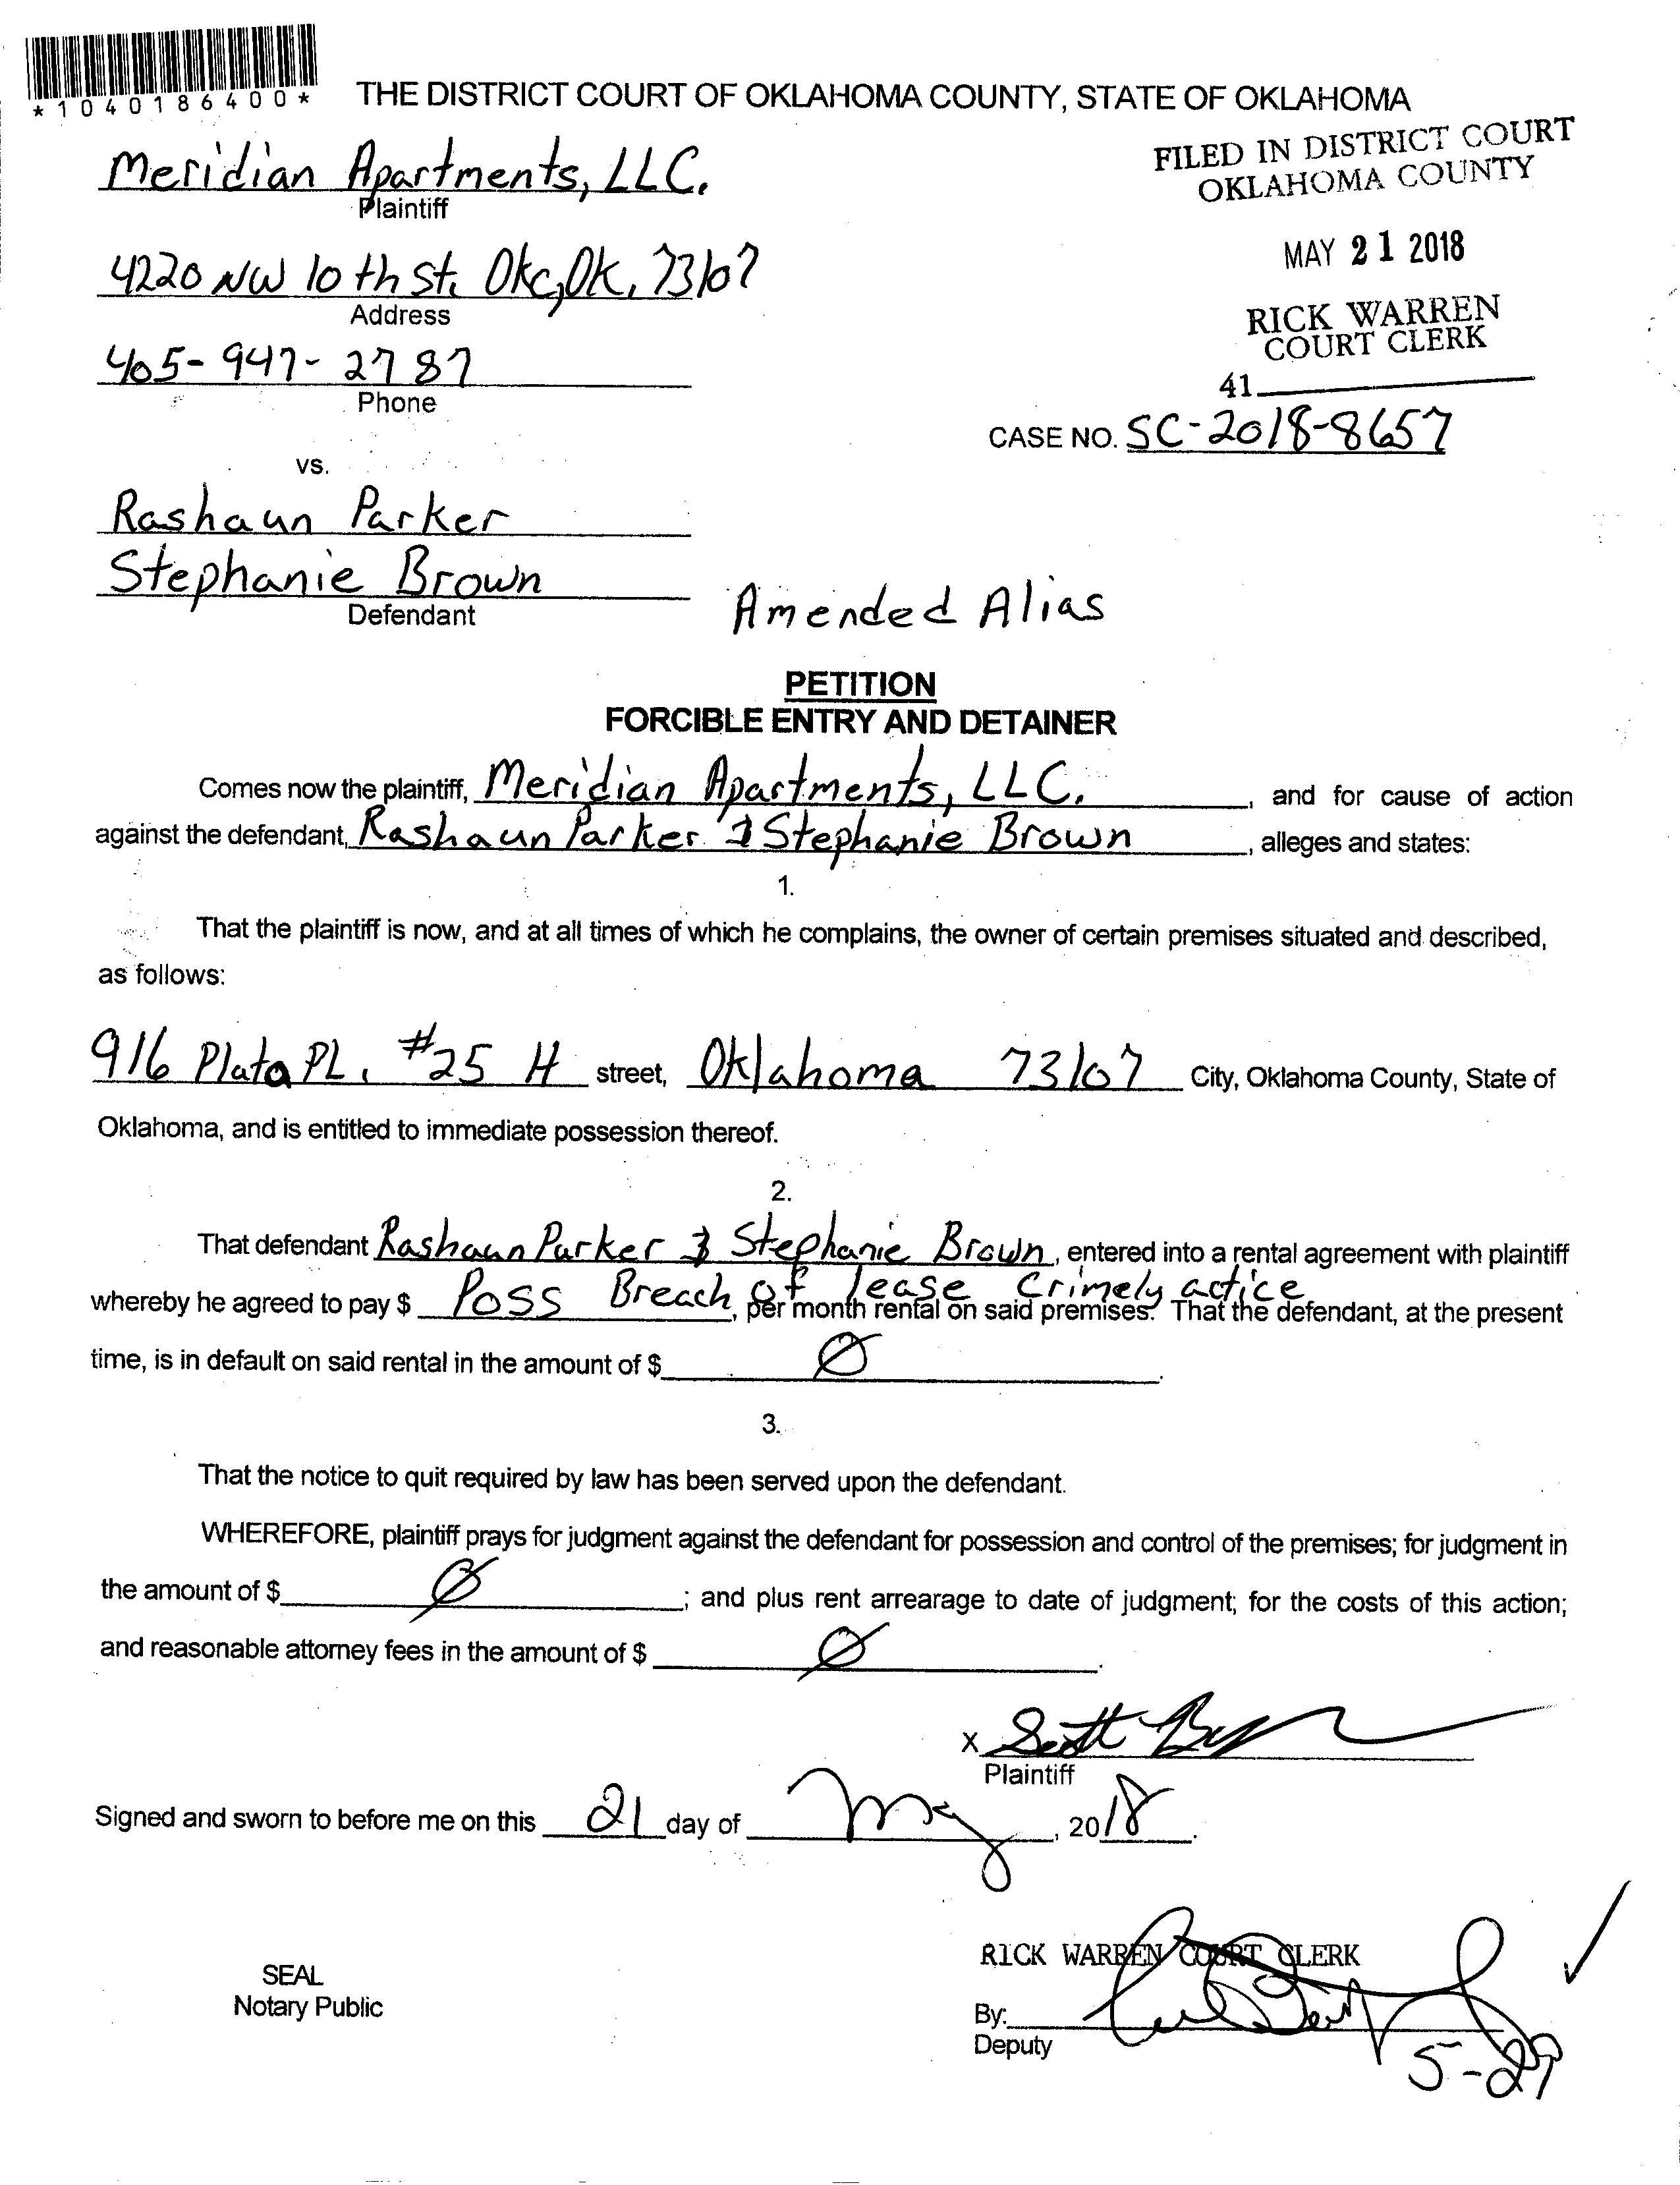 *1040186400*
THE DISTRICT COURT OF OKLAHOMA COUNTY, STATE OF OKLAHOMA
FILED IN DISTRICT COURT
OKLAHOMA COUNTY
Meridian Apartments, LLC.
Plaintiff
MAY 21 2018
4220 NW 10th St. Okc, Ok, 73107
Address
RICK WARREN
COURT CLERK
405-947-2787
Phone
41
CASE NO. SC-2018-8657
vs.
Rashaun Parker
Stephanie Brown
Defendant
Amended Alias
PETITION
FORCIBLE ENTRY AND DETAINER
Comes now the plaintiff, Meridian Apartments, LLC., and for cause of action
against the defendant, Rashaun Parker & Stephanie Brown, alleges and states:
1.
That the plaintiff is now, and at all times of which he complains, the owner of certain premises situated and described,
as follows:
916 Plata PL. #25 H street, Oklahoma 73107 City, Oklahoma County, State of
Oklahoma, and is entitled to immediate possession thereof.
2.
That defendant Rashaun Parker & Stephanie Brown, entered into a rental agreement with plaintiff
Poss Breach of lease Crimely actice
whereby he agreed to pay $ , per month rental on said premises. That the defendant, at the present
time, is in default on said rental in the amount of $ Ø.
3.
That the notice to quit required by law has been served upon the defendant.
WHEREFORE, plaintiff prays for judgment against the defendant for possession and control of the premises; for judgment in
the amount of $ Ø; and plus rent arrearage to date of judgment; for the costs of this action;
and reasonable attorney fees in the amount of $ Ø.
X Scott
Plaintiff
Signed and sworn to before me on this 21 day of May, 2018.
RICK WARREN COURT CLERK
SEAL
Notary Public
By:
Deputy
5-29